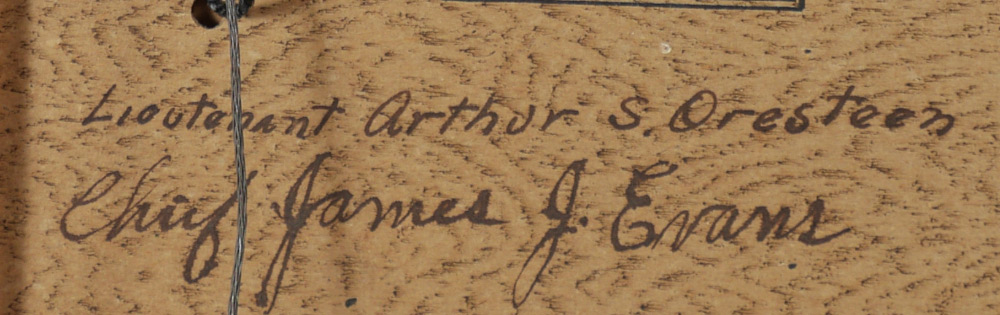 Lieutenant Arthur S. Oresteen
Chief James J. Evans